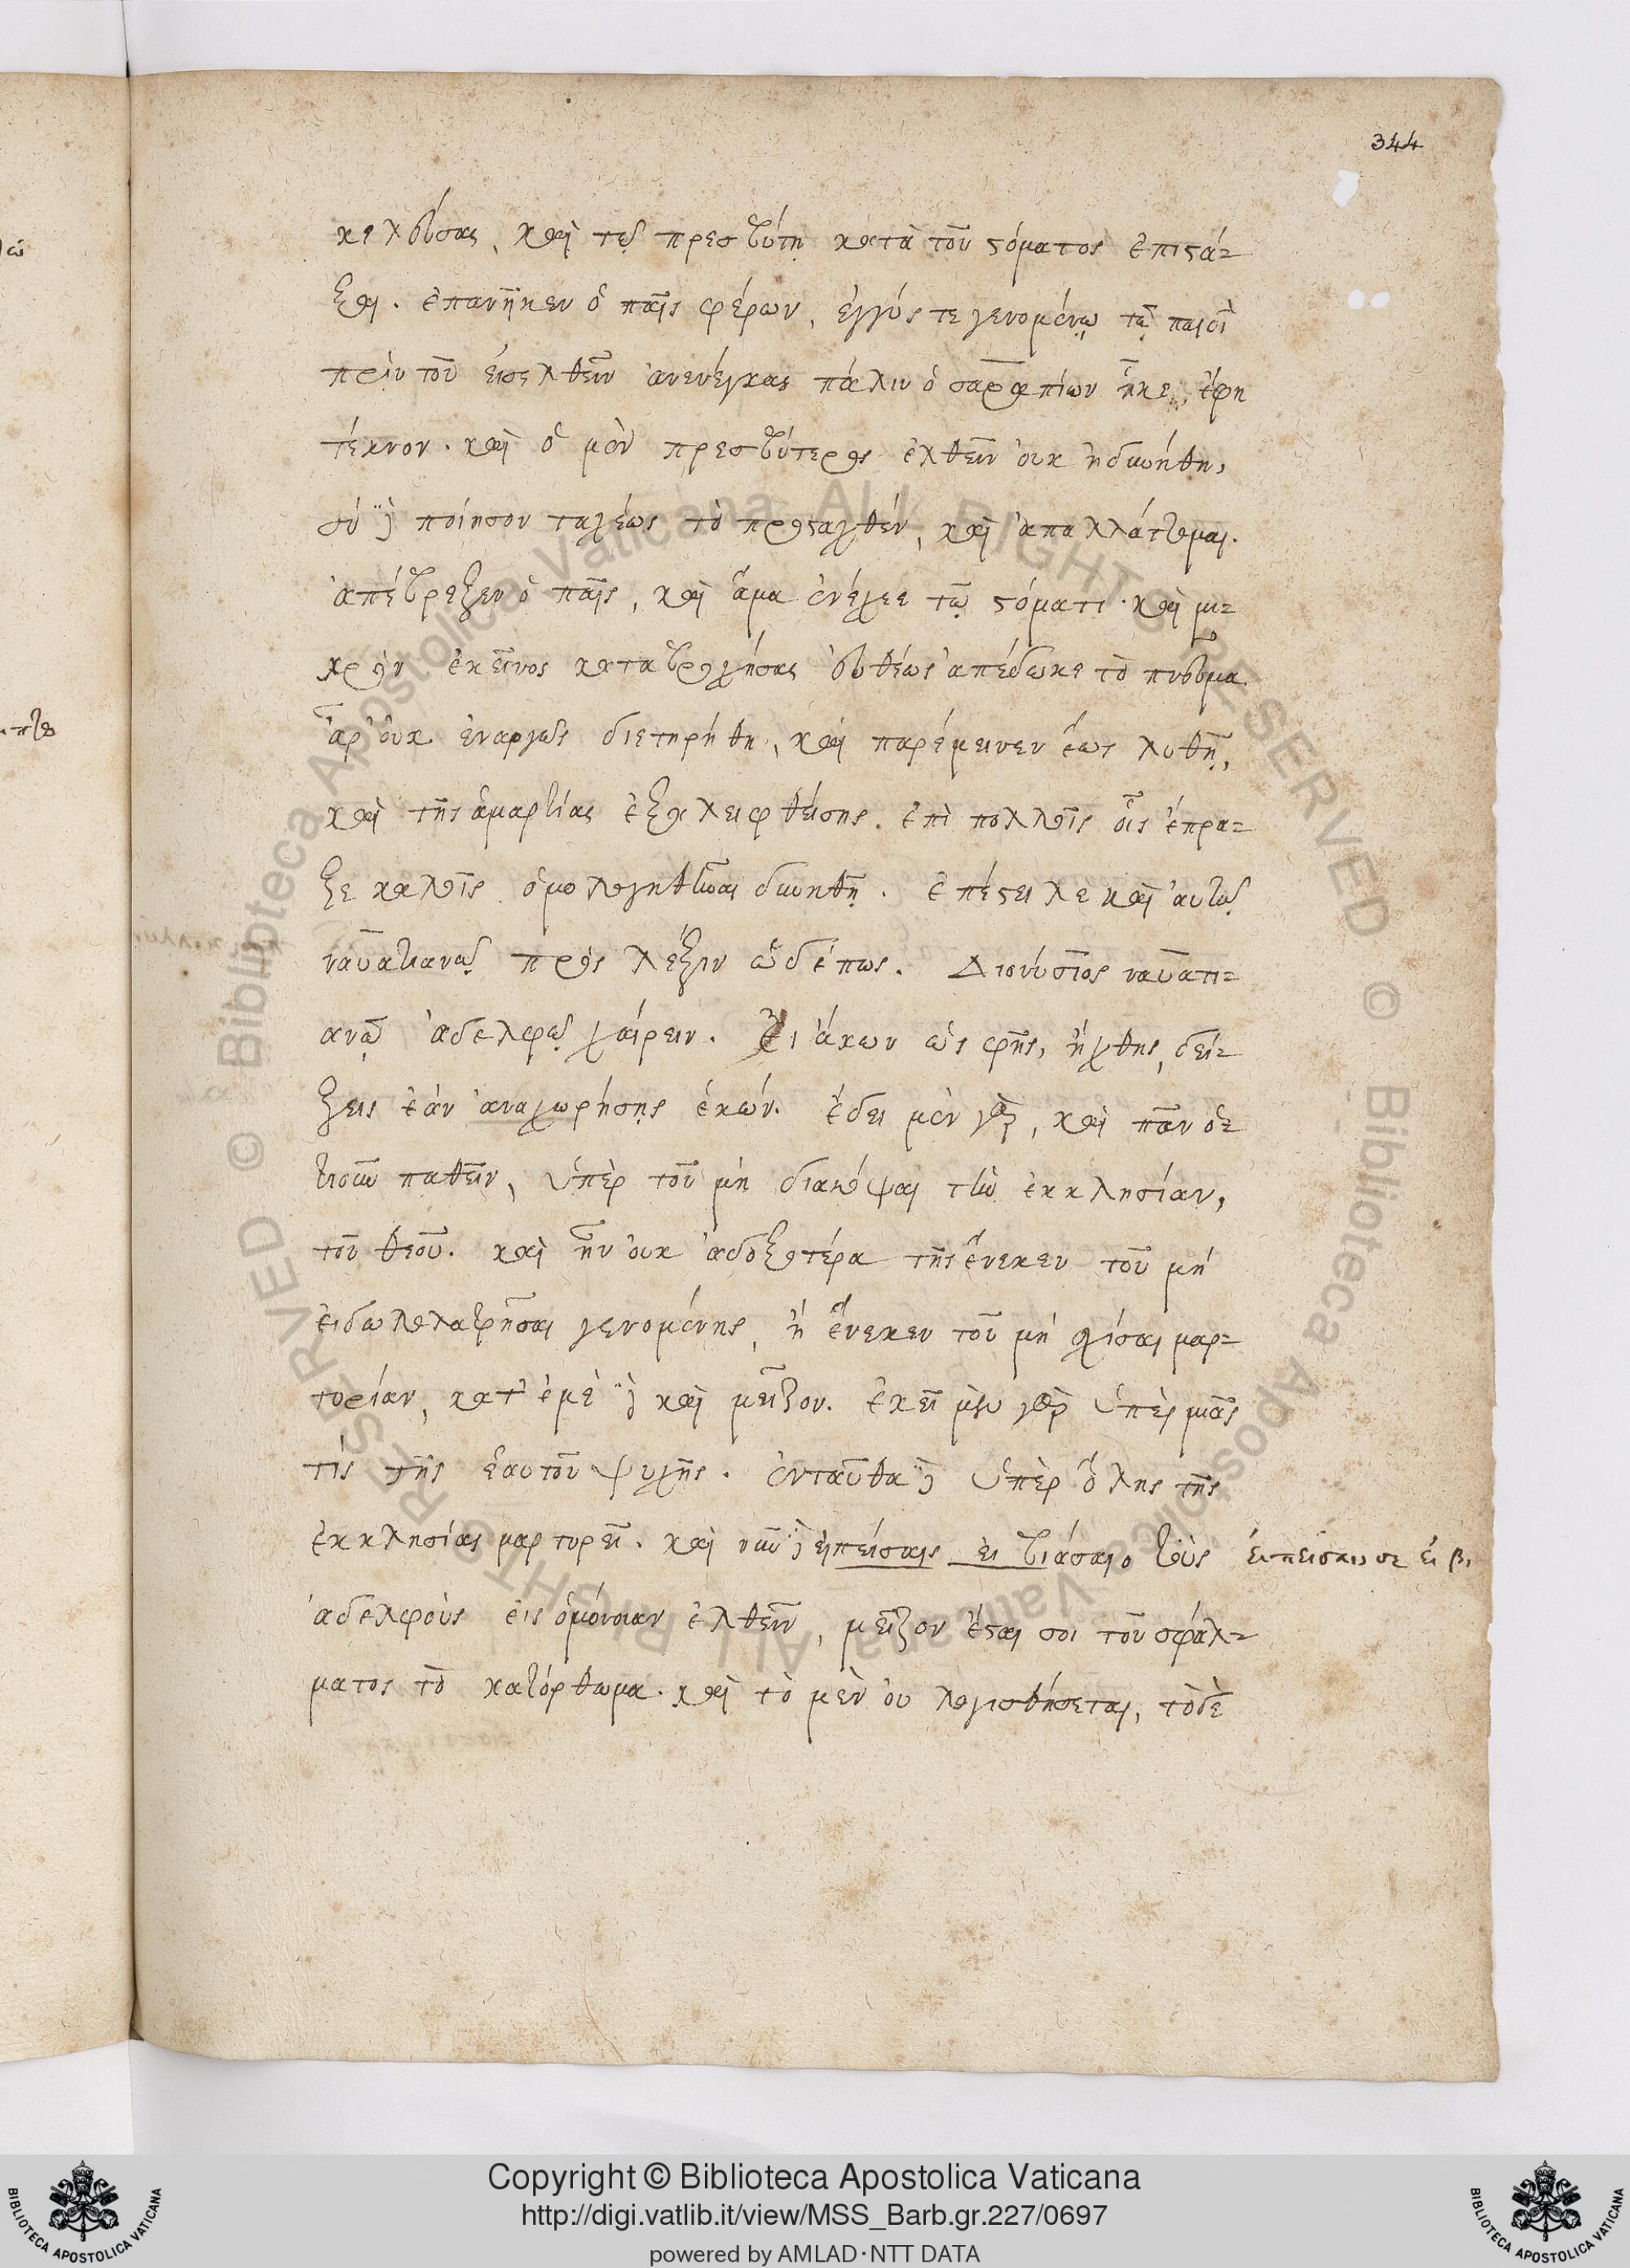 344
κελεύσας, καὶ τῷ πρεσβύτῃ κατὰ τοῦ στόματος ἐπιστά-
ξαι. ἐπανῆκεν ὁ παῖς φέρων, ἐγγύς τε γενομένῳ τῷ παιδὶ
πρὶν τοῦ εἰσελθεῖν ἀνενέγκας πάλιν ὁ σαραπίων ἧκε, ἔφη
τέκνον. καὶ ὁ μὲν πρεσβύτερος ἐλθεῖν οὐκ ἠδυνήθη,
σὺ δὲ ποίησον ταχέως τὸ προσταχθέν, καὶ ἀπαλλάττομαι.
ἀπέβρεξεν ὁ παῖς, καὶ ἅμα ἐνέχεε τῷ στόματι. καὶ μι-
κρὸν ἐκεῖνος καταβροχθήσας εὐθέως ἀπέδωκε τὸ πνεῦμα.
ἆρ' οὐκ ἐναργῶς διετηρήθη, καὶ παρέμεινεν ἕως λυθῇ,
καὶ τῆς ἁμαρτίας ἐξαλειφθείσης. ἐπὶ πολλοῖς οἷς ἔπρα-
ξε καλοῖς ὁμολογηθῆναι δυνηθῇ. ἐπέστειλε καὶ αὐτῷ
ναυατιανῷ πρὸς λέξιν ὧδέ πως. Διονύσιος ναυατι-
ανῷ ἀδελφῷ χαίρειν. Εἰ ἄκων ὡς φῂς, ἤχθης, δεί-
ξεις ἐὰν ἀναχωρήσῃς ἑκών. ἔδει μὲν γὰρ, καὶ πᾶν ὁ-
τιοῦν παθεῖν, ὑπὲρ τοῦ μὴ διακόψαι τὴν ἐκκλησίαν,
τοῦ θεοῦ. καὶ ἦν οὐκ ἀδοξοτέρα τῆς ἕνεκεν τοῦ μὴ
εἰδωλολατρῆσαι γενομένης, ἢ ἕνεκεν τοῦ μὴ σχίσαι μαρ-
τυρίαν, κατ' ἐμὲ δὲ καὶ μεῖζον. ἐκεῖ μὲν γὰρ ὑπὲρ μιᾶς
τὶς τῆς ἑαυτοῦ ψυχῆς. ἐνταῦθα δὲ ὑπὲρ ὅλης τῆς
ἐκκλησίας μαρτυρεῖ. καὶ νῦν δὲ εἰ πείσαις εἰ βιάσαιο τοὺς
εἰ πείσαις εἰ βι
ἀδελφοὺς εἰς ὁμόνοιαν ἐλθεῖν, μεῖζον ἔσται σοι τοῦ σφάλ-
ματος τὸ κατόρθωμα. καὶ τὸ μὲν οὐ λογισθήσεται, τὸ δὲ
Copyright © Biblioteca Apostolica Vaticana
http://digi.vatlib.it/view/MSS_Barb.gr.227/0697
powered by AMLAD·NTT DATA